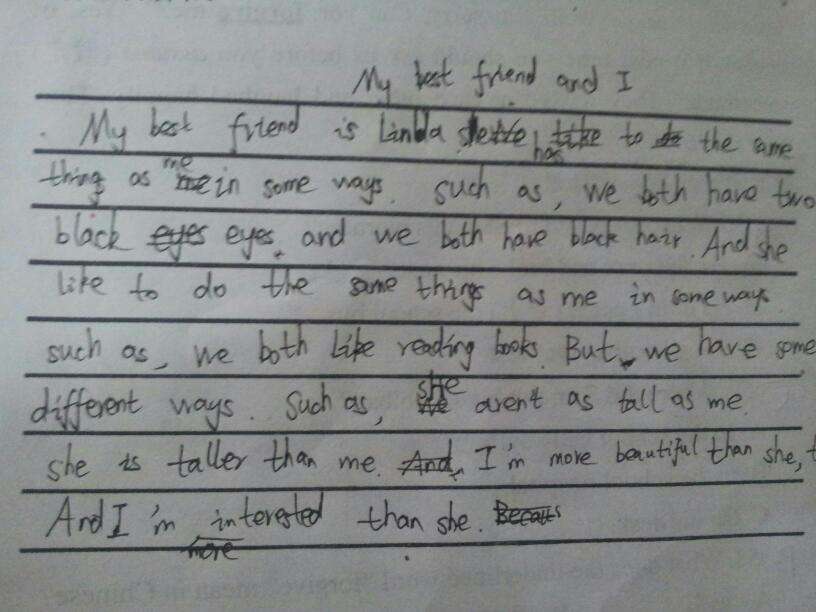 My best friend and I
My best friend is Linda she has to the same
thing as me in some ways. Such as, we both have two
black eyes eyes, and we both have black hair. And she
like to do the same things as me in some ways
such as, we both like reading books. But, we have some
different ways. Such as, she aren't as tall as me.
she is taller than me. And, I'm more beautiful than she,
And I'm more interested than she. Becaus